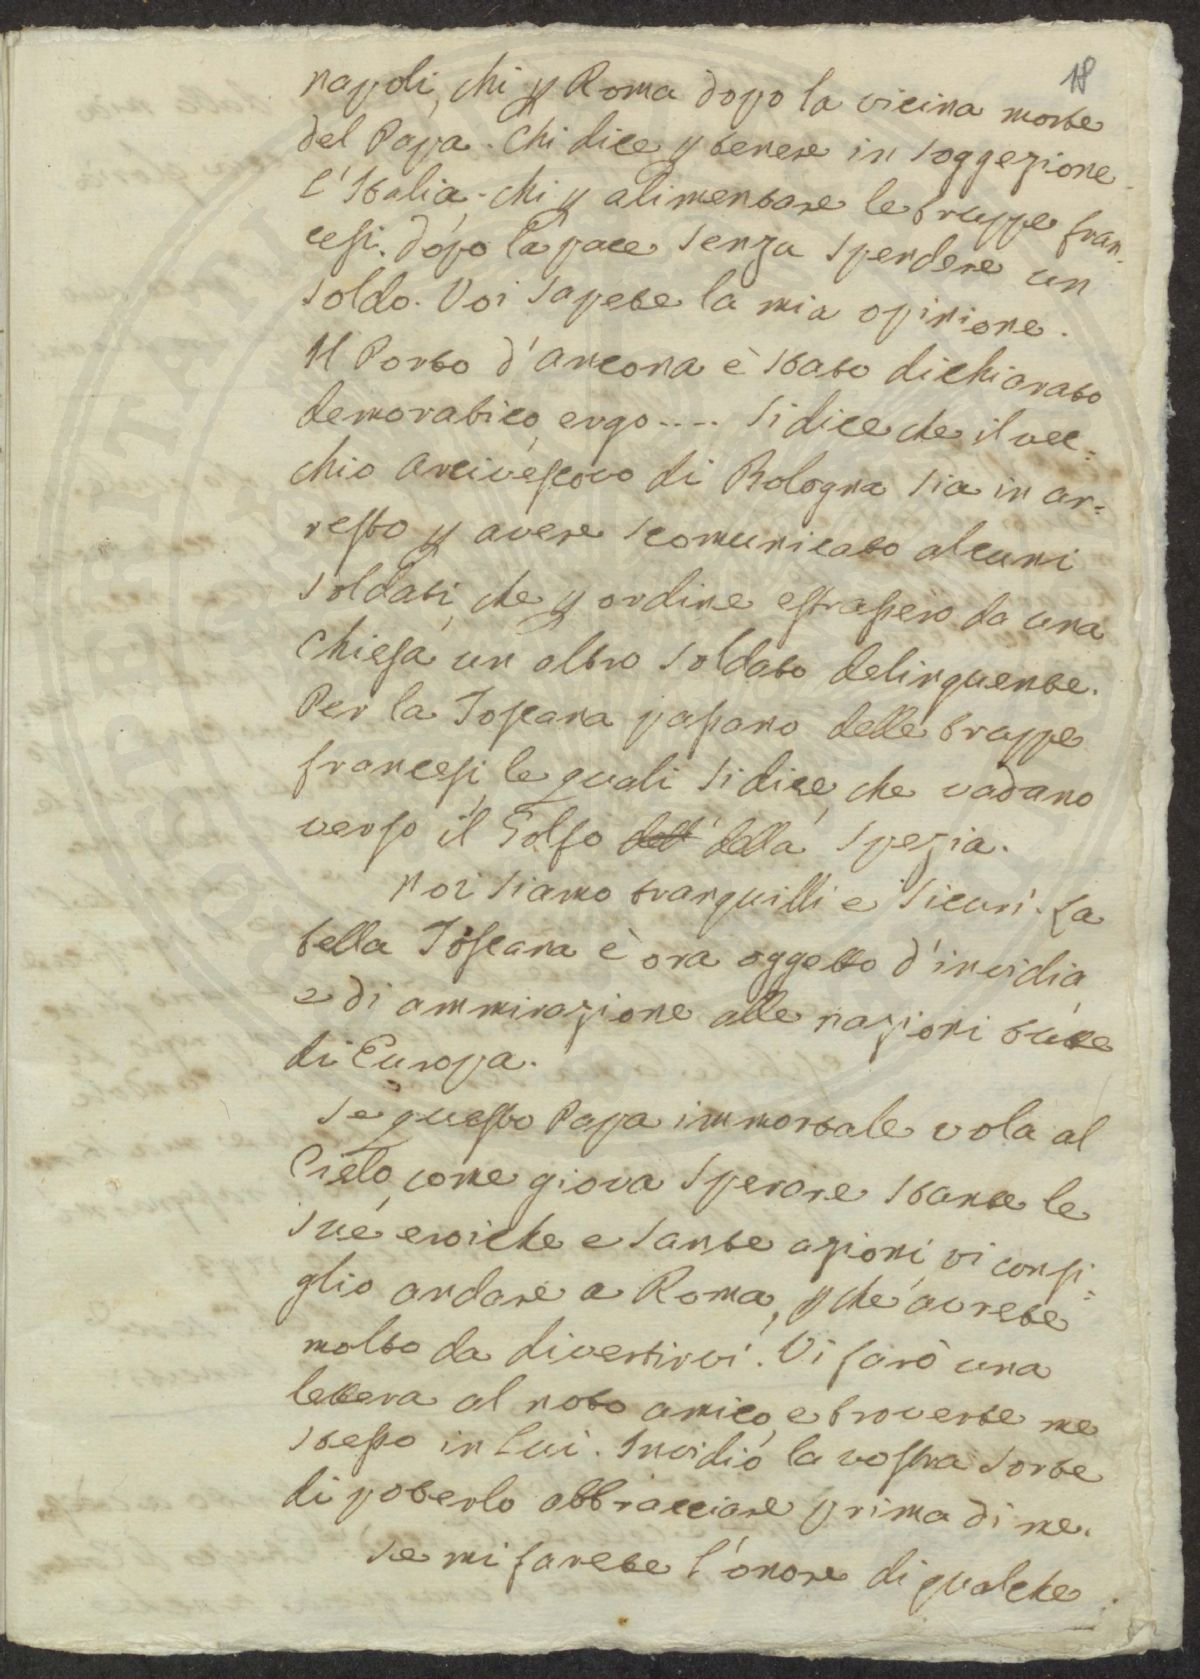 18
napoli, chi p Roma dopo la vicina morte
del Papa. Chi dice p tenere in soggezione
l'Italia. chi p alimentare le truppe fran-
cesi. dopo la pace senza spendere un
soldo. Voi sapete la mia opinione.
Il Porto d'Ancona è stato dichiarato
demoratico, ergo.... Si dice che il vec=
chio Arcivescovo di Bologna sia in ar=
resto p avere scomunicato alcuni
soldati, che p ordine estrassero da una
Chiesa un altro soldato delinquente.
Per la Toscana passano delle truppe
francesi, le quali si dice, che vadano
verso il Golfo dell' della Spezia.
Noi siamo tranquilli e sicuri. La
bella Toscana è ora oggetto d'invidia
e di ammirazione alle nazioni tutte
di Europa.
Se questo Papa immortale vola al
Cielo, come giova sperare stante le
sue eroiche e sante azioni, vi consi=
glio andare a Roma, p che avrete
molto da divertirvi. Vi farò una
lettera al noto amico, e troverete me
stesso in lui. Invidio la vostra sorte
di poterlo abbracciare prima di me.
Se mi farete l'onore di qualche